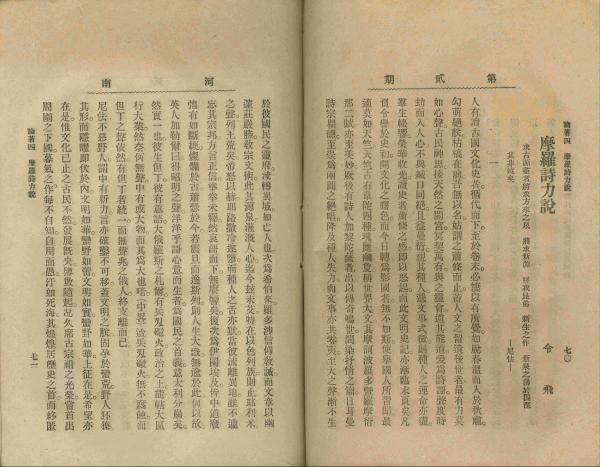 第貳期
論著四 摩羅詩力說
七〇
摩羅詩力說
令飛
求古源盡者將求方來之泉 將求新源 嗟我昆弟 新生之作 新泉之湧於淵深
其非遠矣
—尼佉—
一
人有讀古國文化史者循代而下至於卷末必凄以有所覺如脫春溫而入於秋肅
勾萌絕朕枯槁在前吾無以名姑謂之蕭條而止蓋人文之留遺後世者最有力莫
如心聲古民神思接天然之閟宮冥契萬有與之靈會道其能道爰為詩歌其聲度時
劫而入人心不與緘口同絕且益曼衍視其種人遞文事式微則種人之運命亦盡
羣生輟響榮華收光讀史者蕭條之感即以怒起而此文明史記亦漸臨末頁矣凡
負令譽於史初開文化之曙色而今日轉為影國者無不如斯使舉國人所習聞最
適莫如天竺天竺古有韋陀四種瑰麗幽敻稱世界大文其摩訶波羅多暨羅摩衍
那二賦亦至美妙厥後有詩人加黎陀薩者出以傳奇鳴世間染抒情之篇日耳曼
詩宗瞿提至崇為兩間之絕唱降及種人失力而文事亦共零夷至大之聲漸不生
河南
於彼國民之靈府流轉異域如亡人也次為希伯來雖多涉信仰教誡而文章以幽
邃莊嚴勝教宗文術此其源泉灌溉人心迄今茲未艾特在以色列族則止耶利米
之聲列王荒矣帝怒以赫耶路撒冷遂隳而種人之舌亦默當彼流離異地雖不遽
忘其宗邦方言正信拳拳未釋然哀歌而下無賡響矣復次為伊蘭埃及皆中道廢
弛有如斷綆燦爛於古蕭瑟於今若震旦而逸斯列則人生大戩無逾於此何以故
英人加勒爾曰得昭明之聲洋洋乎歌心意而生者為國民之首義意太利分崩矣
然實一也彼生但丁彼有意語大俄羅斯之札爾有兵刃礮火政治之上能轄大區
行大業然奈何無聲中或有大物而其為大也喑(中畧)迨兵刃礮火無不腐蝕而
但丁之聲依然有但丁者統一而無聲兆之俄人終支離而已
尼佉不惡野人謂中有新力言亦確鑿不可移蓋文明之朕固孕於蠻荒野人狉獉
其形而隱曜即伏於內文明如華蠻野如蕾文明如實蠻野如華上征在是希望亦
在是惟文化已止之古民不然發展既央隳敗隨起況久席古宗祖之光榮嘗首出
周圍之下國暮氣之作每不自知自用而愚汙如死海其煌煌居歷史之首而終匿
論著四 摩羅詩力說
七一